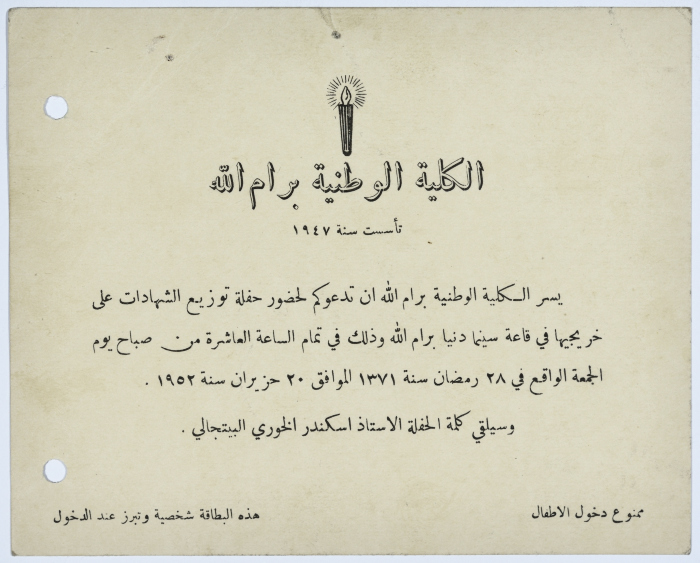 الكلية الوطنية برام الله
تأسست سنة ١٩٤٧
يسر الكلية الوطنية برام الله ان تدعوكم لحضور حفلة توزيع الشهادات على
خريجيها في قاعة سينما دنيا برام الله وذلك في تمام الساعة العاشرة من صباح يوم
الجمعة الواقع في ٢٨ رمضان سنة ١٣٧١ الموافق ٢٠ حزيران سنة ١٩٥٢ .
وسيلقي كلمة الحفلة الاستاذ اسكندر الخوري البيتجالي .
ممنوع دخول الاطفال
هذه البطاقة شخصية وتبرز عند الدخول